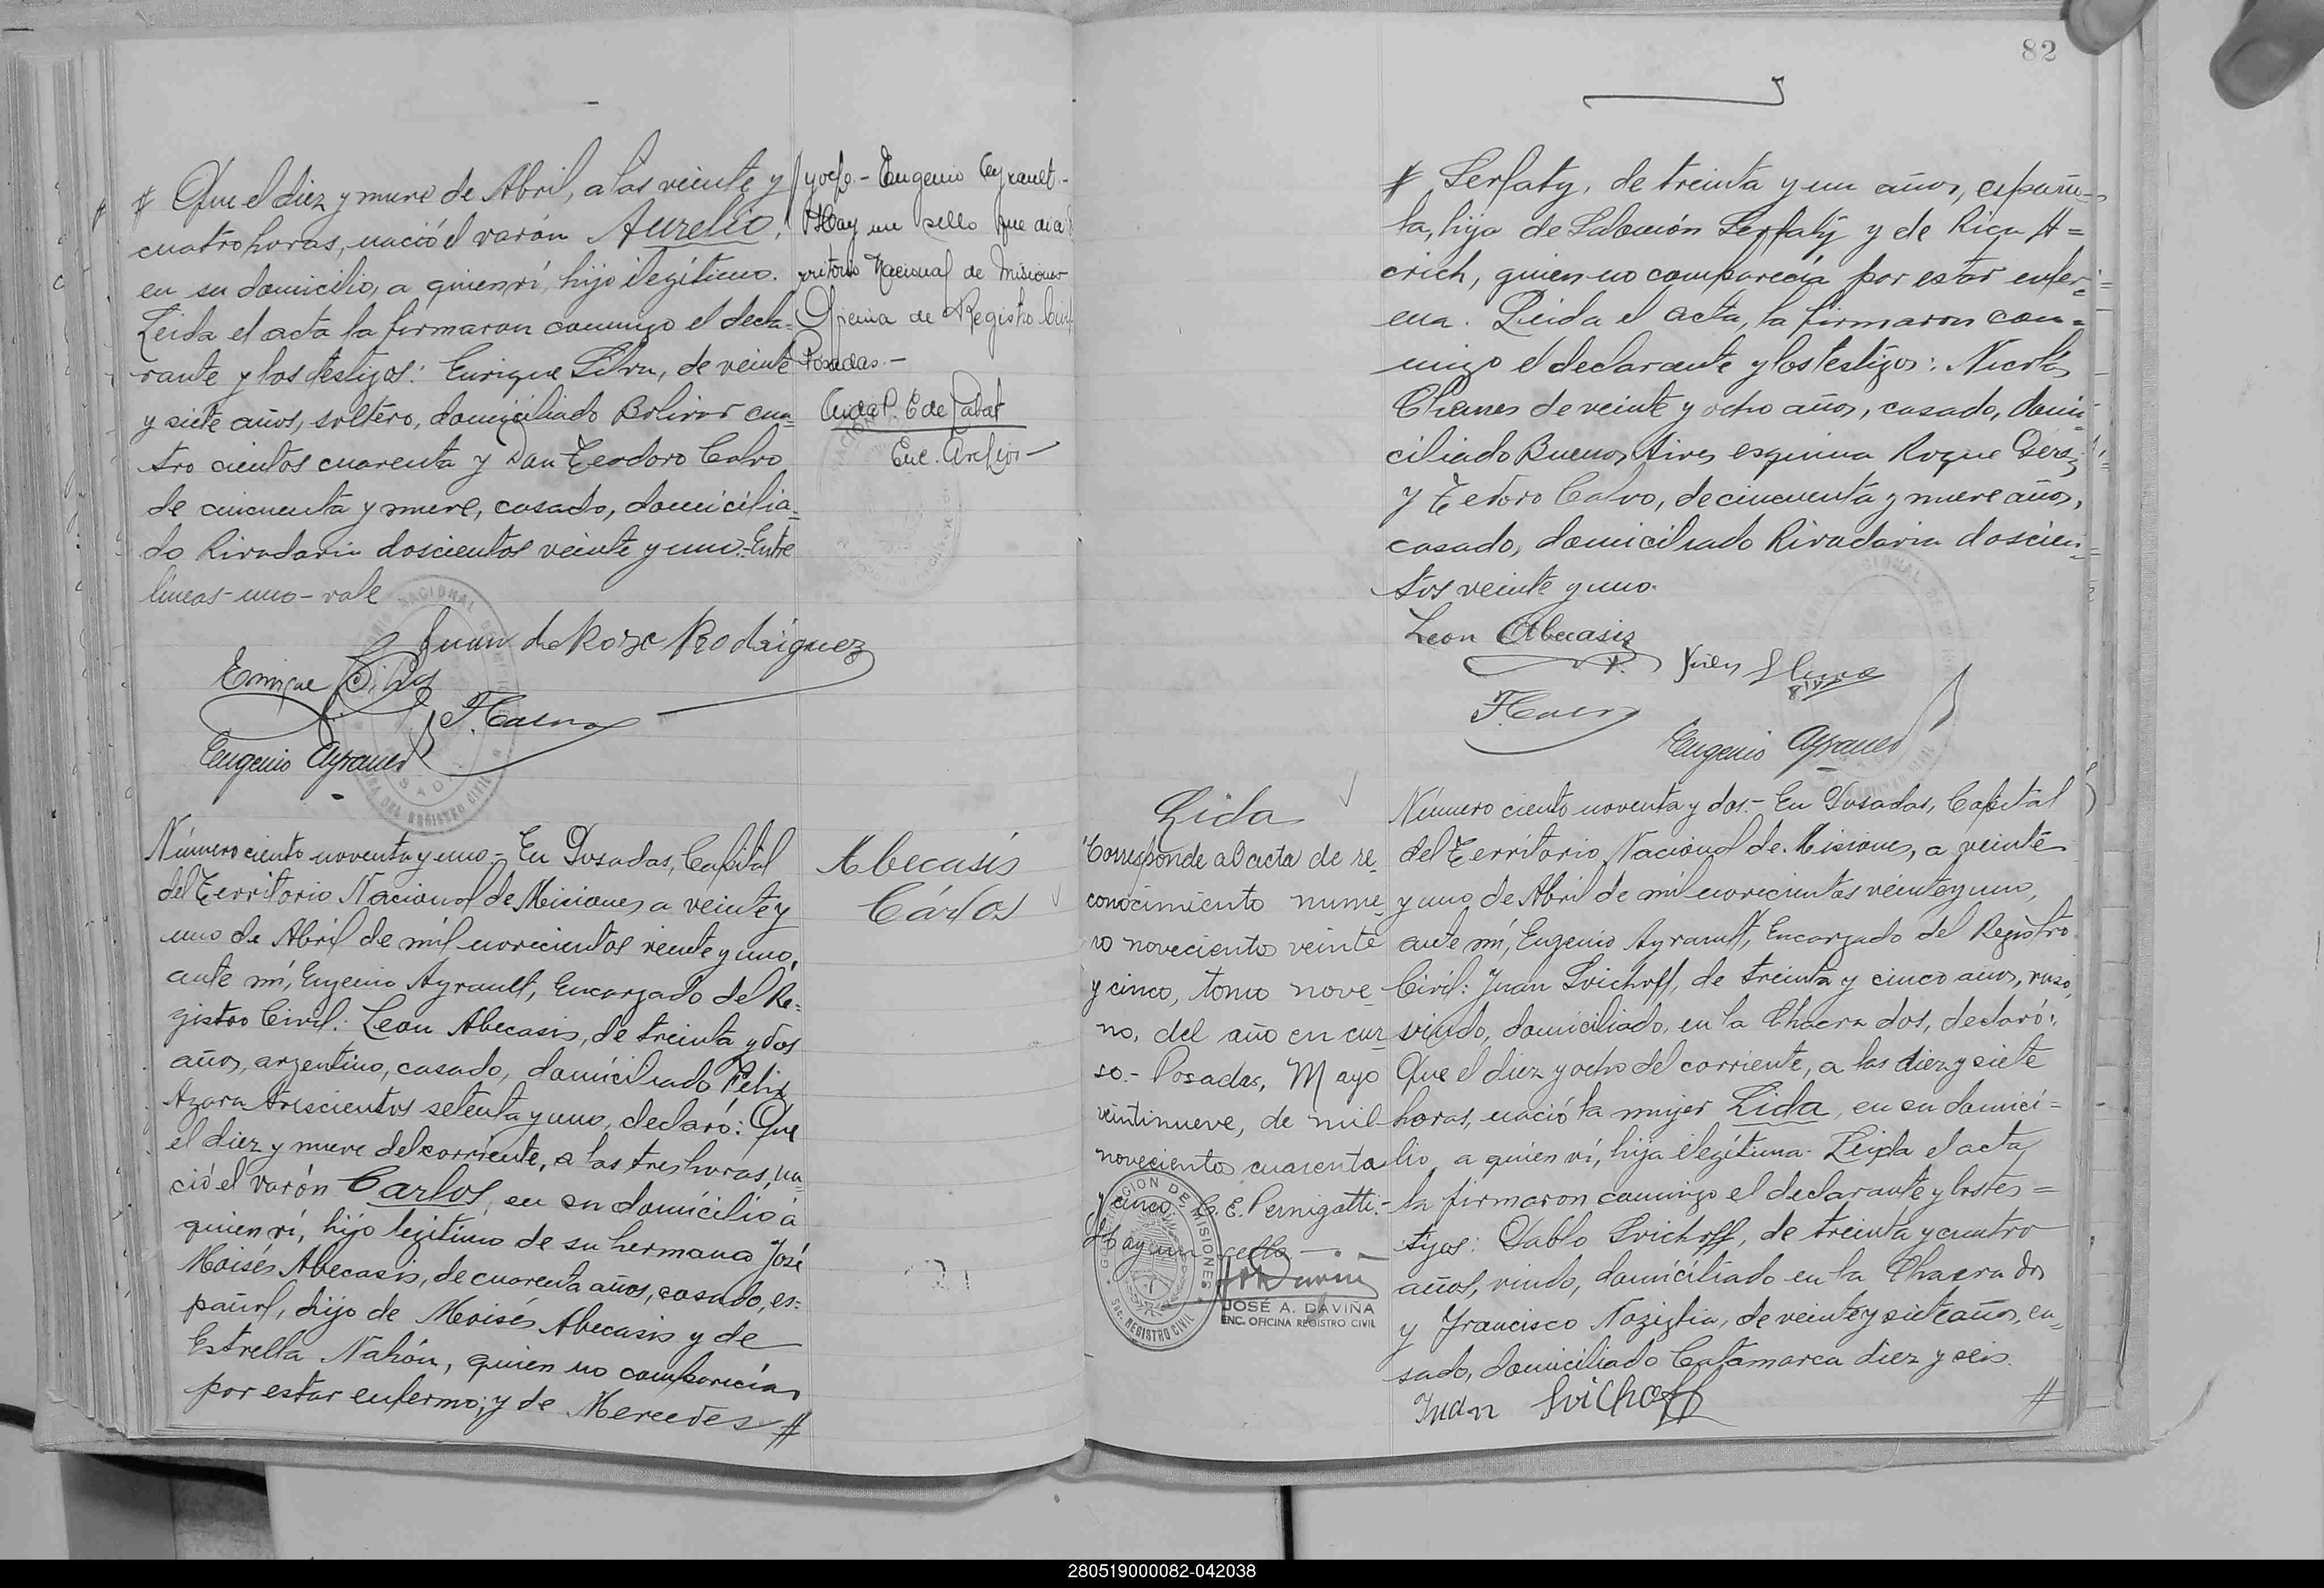 # Que el diez y nueve de Abril, a las veinte y
cuatro horas, nació el varón Aurelio,
en su domicilio, a quien ví, hijo ilegítimo.
Leida el acta la firmaron conmigo el decla-
rante y los testigos: Enrique Silva, de veinte
y siete años, soltero, domiciliado Bolivar cua-
tro cientos cuarenta y Don Teodoro Calvo
de cincuenta y nueve, casado, domicilia-
do Rivadavia doscientos veinte y uno.- Entre
lineas - uno - vale
Juan de Rosa Rodríguez
Enrique Silva
Eugenio Ayrault
y ocho.- Eugenio Ayrault.-
Hay un sello que dice
rritorio Nacional de Misiones
Oficina de Registro Civil
Posadas.-
Enc. Archivo
Número ciento noventa y uno - En Posadas, Capital
del Territorio Nacional de Misiones a veinte y
uno de Abril de mil novecientos veinte y uno,
ante mí, Eugenio Ayrault, Encargado del Re-
gistro Civil: Leon Abecasis, de treinta y dos
años, argentino, casado, domiciliado Felix
Azara trescientos setenta y uno, declaró: Que
el diez y nueve del corriente, a las tres horas, na-
ció el varón Carlos, en su domicilio a
quien ví, hijo legítimo de su hermano José
Moisés Abecasis, de cuarenta años, casado, es-
pañol, hijo de Moisés Abecasis y de
Estrella Nahón, quien no comparecía
por estar enfermo; y de Mercedes #
Abecasis
Cárlos
82
# Serfaty, de treinta y un años, españo-
la, hija de Salomón Serfaty y de Rica A=
crich, quien no comparecía por estar enfer-
ma. Leida el acta, la firmaron con-
migo el declarante y los testigos: Nicolás
de veinte y ocho años, casado, domi-
ciliado Buenos Aires esquina Roque
y Teodoro Calvo, de cincuenta y nueve años,
casado, domiciliado Rivadavia doscien-
tos veinte y uno.
Leon Abecasis
Eugenio Ayrault
Lida
Corresponde al acta de re-
conocimiento núme-
ro novecientos veinte
y cinco, tomo nove-
no, del año en cur-
so.- Posadas, Mayo
veintinueve, de mil
novecientos cuarenta
y cinco. C. E. Pernigotti.-
Hay un sello
JOSÉ A. DAVIÑA
ENC. OFICINA REGISTRO CIVIL
Número ciento noventa y dos.- En Posadas, Capital
del Territorio Nacional de Misiones, a veinte
y uno de Abril de mil novecientos veinte y uno,
ante mí, Eugenio Ayrault, Encargado del Registro
Civil: Juan Svichoff, de treinta y cinco años, ruso,
viudo, domiciliado, en la Chacra dos, declaró:
Que el diez y ocho del corriente, a las diez y siete
horas, nació la mujer Lida, en su domici=
lio, a quien ví, hija ilegítima. Leida el acta
la firmaron conmigo el declarante y los tes=
tigos: Pablo Svichoff, de treinta y cuatro
años, viudo, domiciliado en la Chacra dos
y Francisco Noziglia, de veinte y siete años, ca-
sado, domiciliado Catamarca diez y seis.
Juan Svichoff #
280519000082-042038